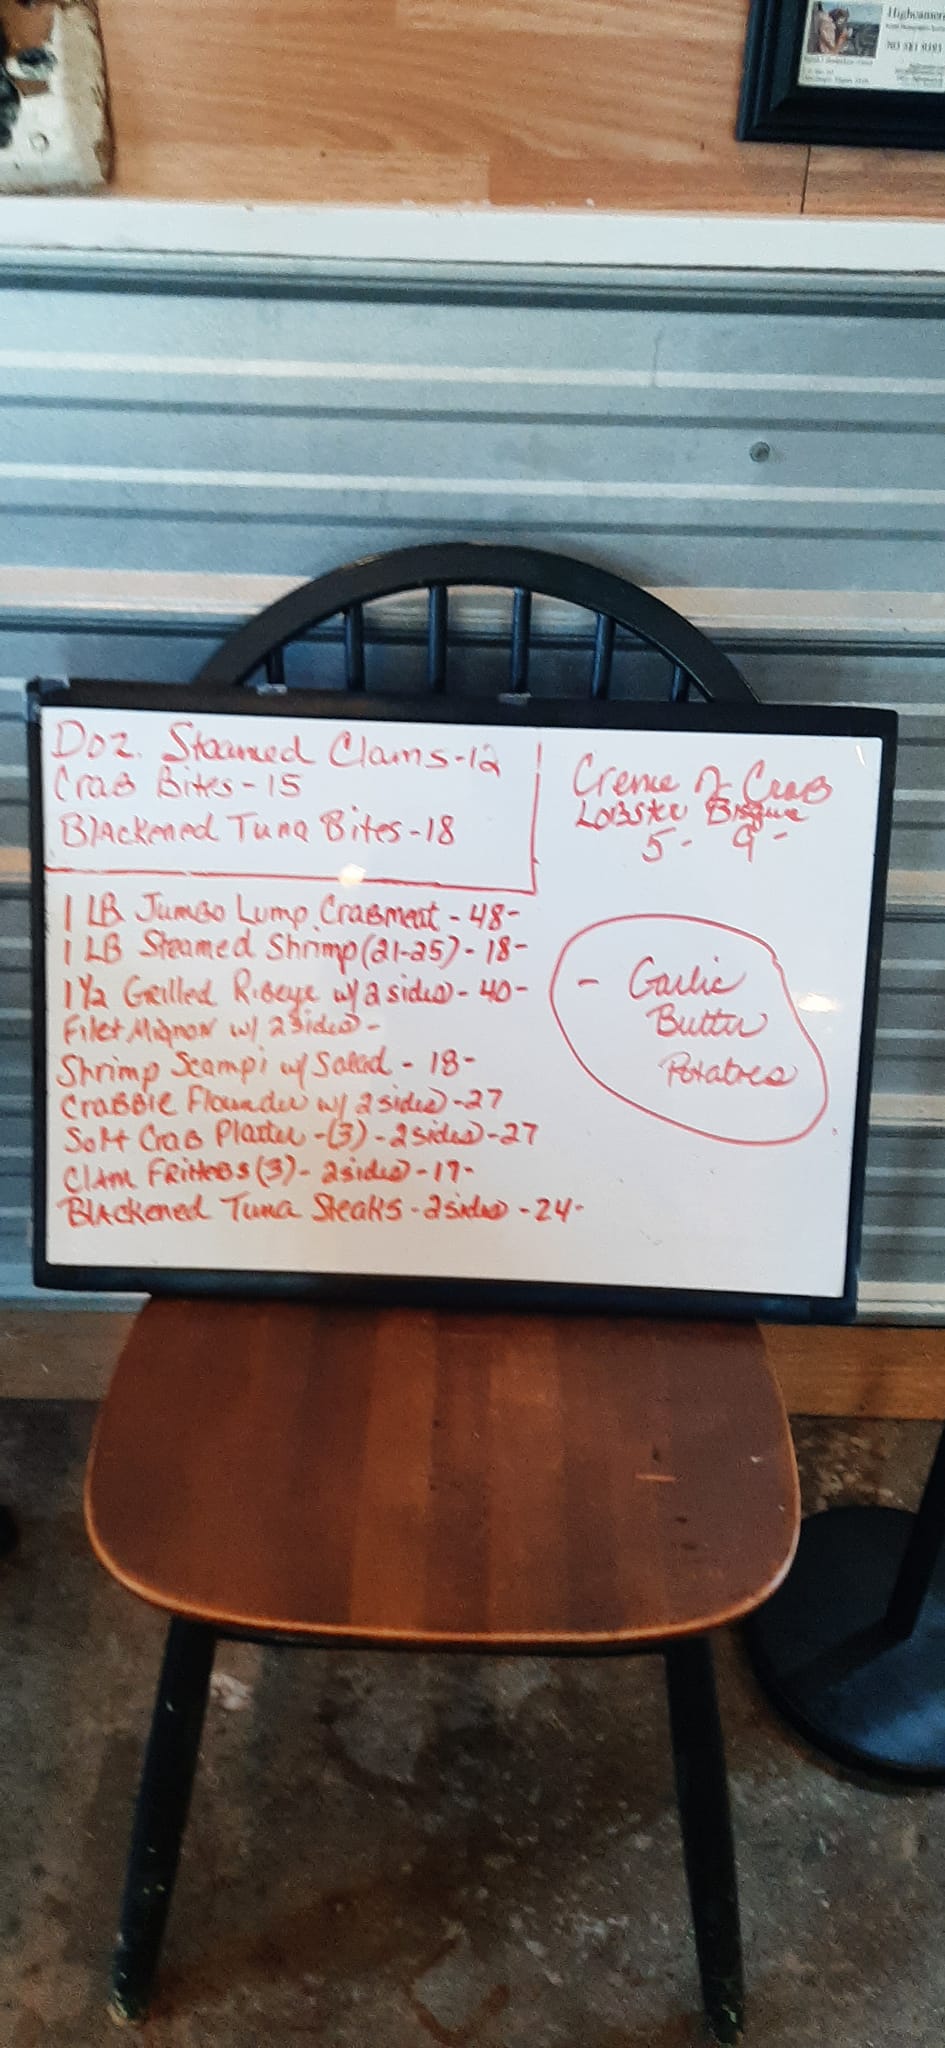 Highcamera
703 581 9393
Doz. Steamed Clams-12
Crab Bites-15
Blackened Tuna Bites-18
Creme of Crab
Lobster Bisque
5- 9-
1 LB Jumbo Lump Crabmeat - 48-
1 LB Steamed Shrimp (21-25) - 18-
1 1/2 Grilled Ribeye w/ 2 sides - 40-
Filet Mignon w/ 2 sides -
Shrimp Scampi w/ Salad - 18-
Crabbie Flounder w/ 2 sides - 27
Soft Crab Platter - (3) - 2 sides - 27
Clam Fritters (3) - 2 sides - 17-
Blackened Tuna Steaks - 2 sides - 24-
- Garlic
Butter
Potatoes